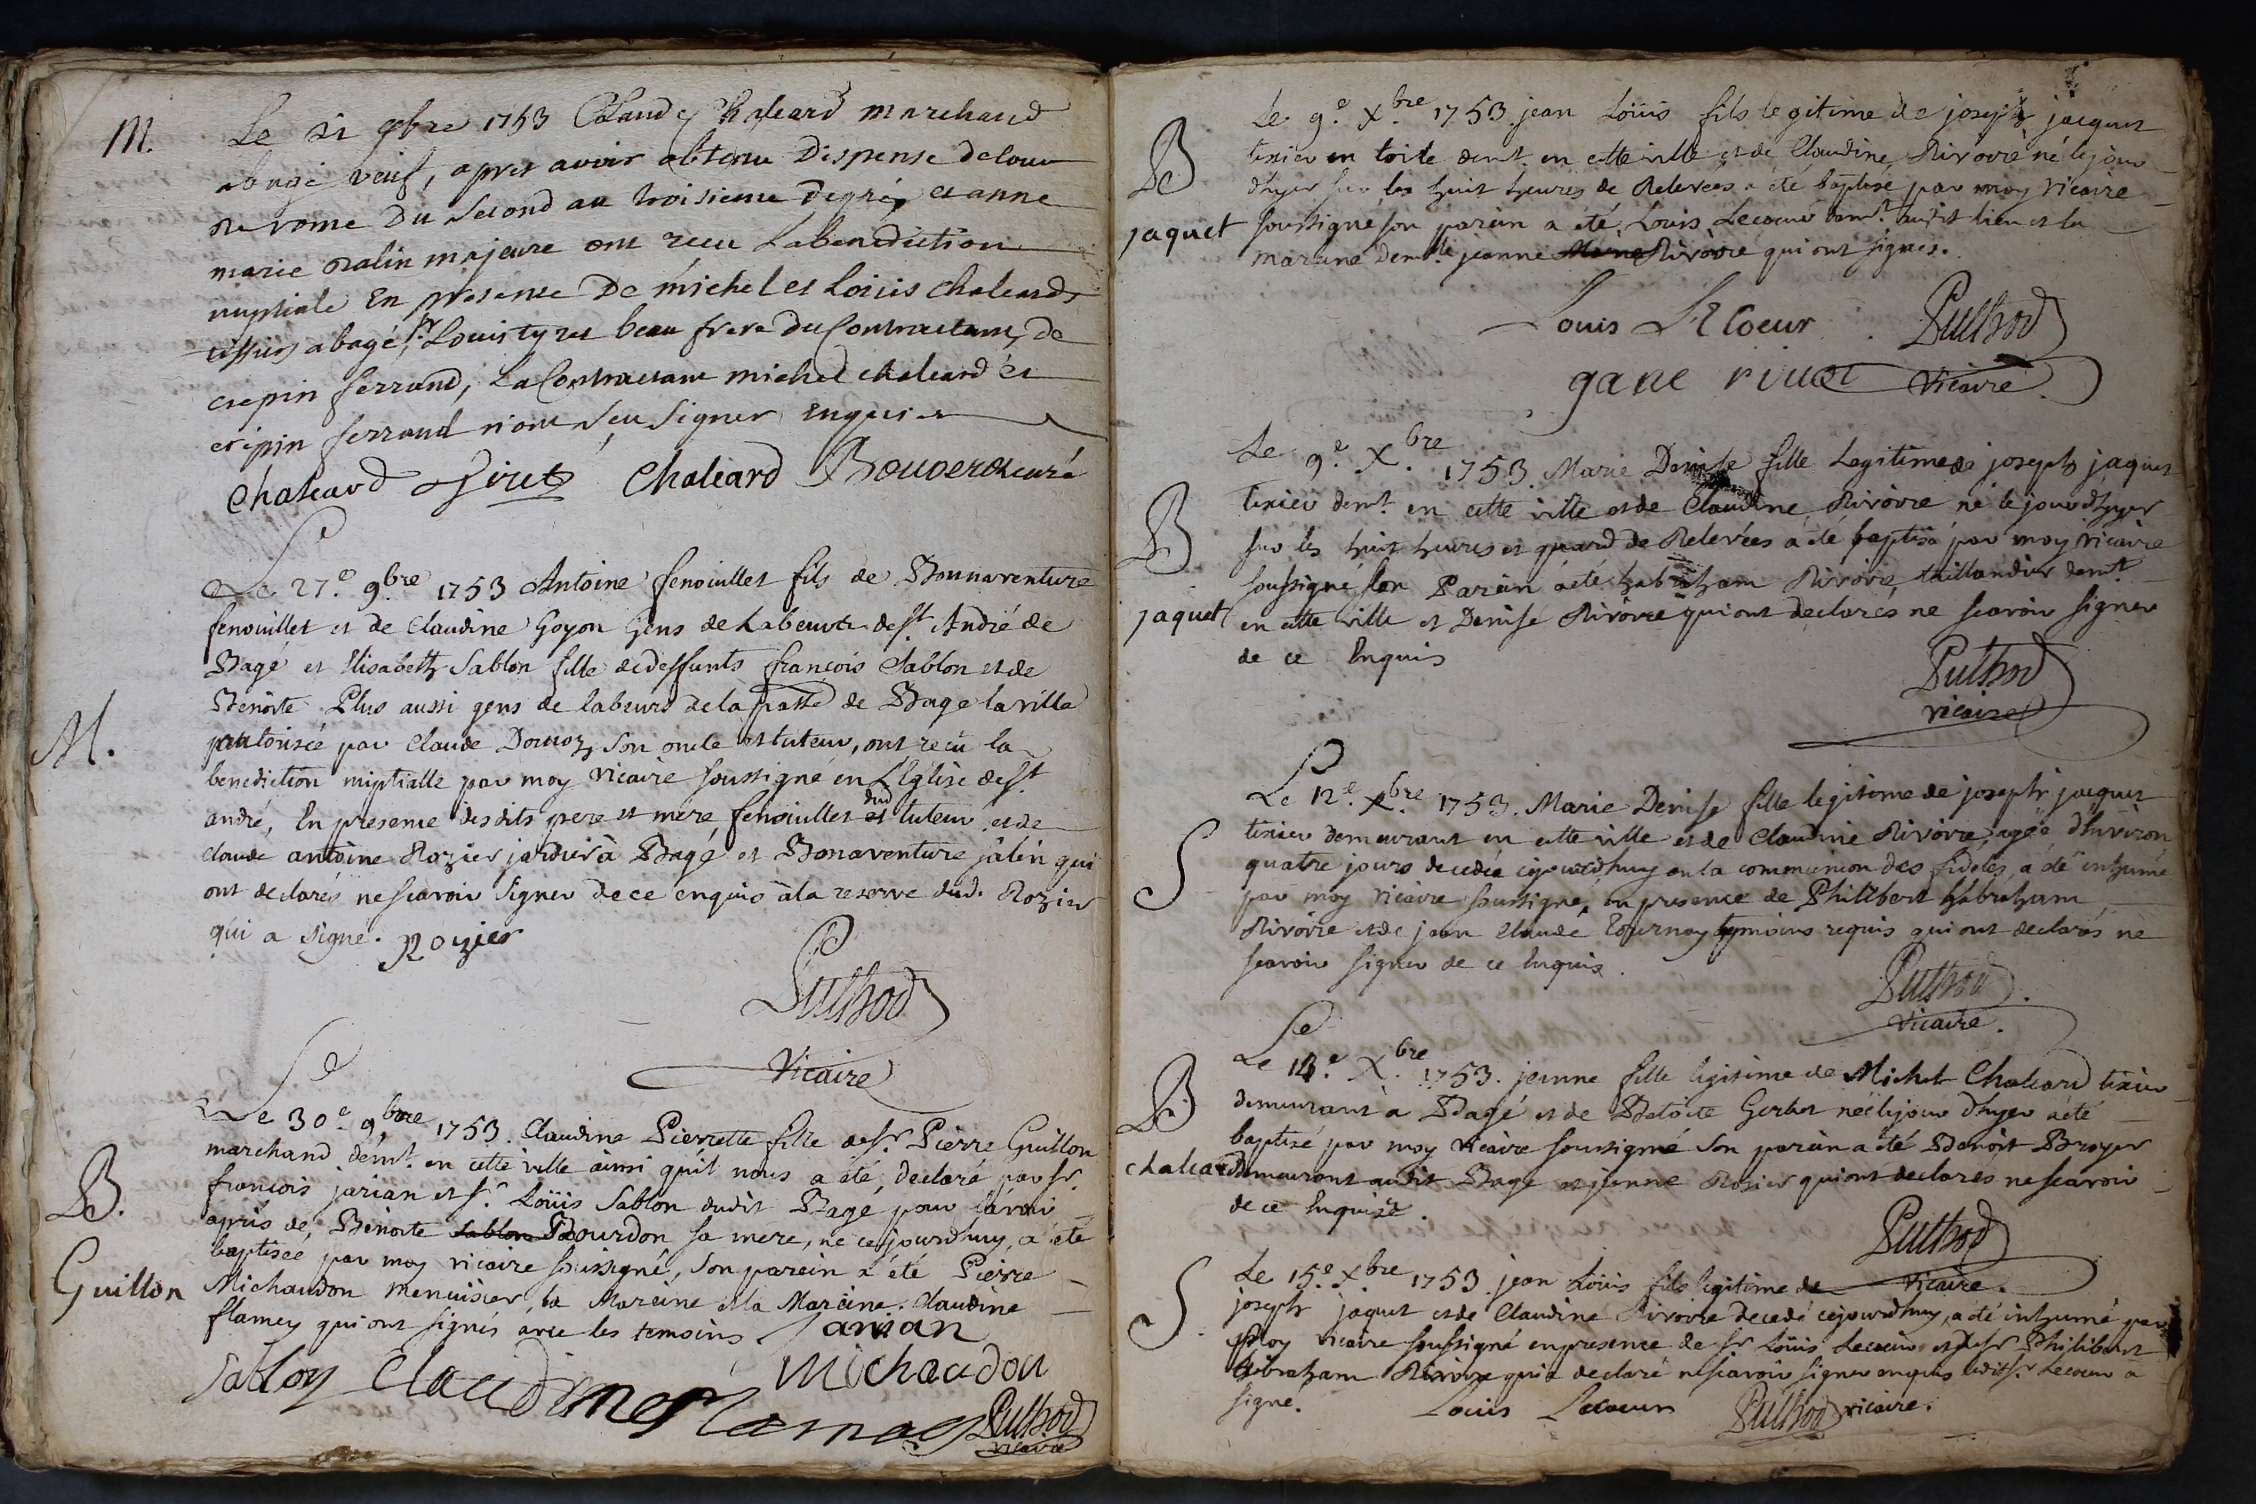 M. Le six 9bre 1753 Claude Chaleard marchand
a bagé veuf, apres avoir obtenu Dispense de cour
de rome Du Second au troisieme degré, et anne
marie ralin majeure ont reçu La benediction
nuptiale En presence De michel et Loüis chaleard
tissiers a bagé, Sr Louis tyret beau frere du Contractant, de
crepin ferrand, La Contractante michel chaleard et
crepin ferrand n'ont Sçu Signer Enquis
Chaleard Tiret Chaleard Bouveret curé
Le 27e. 9bre 1753 Antoine fenouillet fils de Bonnaventure
fenouillet et de Claudine Goyon Gens de Labeurs de St. André de
Bagé et Elisabeth Sablon fille de deffunts françois Sablon et de
Benoite Plus aussi gens de labeurs de la passe de Bage la ville
M. authorisée par Claude Donnoz, Son oncle et tuteur, ont reçu la
benediction nuptialle par moy vicaire soussigné en L'Eglise de St.
andré, En presence desdits pere et mere, fenouillet et dud tuteur et de
Claude antoine Rozier jardier à Bagé et Bonaventure jalin qui
ont declarés ne scavoir Signer de ce enquis à la reserve dud. Rozier
qui a signé. Rozier
Puthod
vicaire
Le 30e. 9bre 1753. Claudine Pierrette fille de Sr. Pierre Guillon
marchand demt. en cette ville ainsi qu'il nous a été declaré par Sr.
françois jarian et Sr. Loüis Sablon dudit Bagé pour l'avoir
B. apris de Benoite Sablon Bourdon sa mere, né ce jourdhuy, a été
baptisée par moy vicaire soussigné, Son parein a été Pierre
Guillon Michaudon menuisier, la Mareine et la Mareine Claudine
flamey qui ont signés avec les temoins Jarian
Sablon Claudine flamey Michaudon
Puthod
vicaire
Le 9e. Xbre 1753. jean Loüis fils legitime de joseph jacquet
B tixier en toile demt. en cette ville et de Claudine Rivoire né le jour
d'hyer sur les huit heures de Relevées a été baptisé par moy vicaire
jaquet soussigné son parain a été Louis Lecoeur demt. audit lieu et la
maraine Demlle jeanne Marie Rivoire qui ont signés.
Louis LE Coeur Puthod
gane rivoi vicaire
Le 9e. Xbre 1753. Marie Denise fille Legitime de joseph jaquet
B tixier demt. en cette ville et de Claudine Rivoire né le jour d'hyer
sur les huit heures et quard de Relevées a été baptisé par moy vicaire
soussigné son Parain a été habraham Rivoire, taillandier demt.
jaquet en cette ville et Denise Rivoire qui ont declarés ne scavoir signer
de ce Enquis
Puthod
vicaire
Le 12e. Xbre 1753. Marie Denise fille legitime de joseph jacquet
tixier demeurant en cette ville et de Claudine Rivoire, agée d'hiviron
S quatre jours decedée cejourdhuy en la communion des fideles, a été inhumé
par moy vicaire soussigné, en presence de Philibert habraham
Rivoire et de jean Claude Tournay temoins requis qui ont declarés ne
scavoir signer de ce Enquis.
Puthod
vicaire.
Le 14e. Xbre 1753. jeanne fille legitime de Michel Chaleard tixier
B demeurant à Bagé et de Benoite Gerbet née le jour d'hyer a été
baptisé par moy vicaire soussigné Son parain a été Benoit Broyer
chaleard demeurant audit Bagé et jeanne Rosier qui ont declarés ne scavoir
de ce Enquise.
Puthod
vicaire.
S. Le 15e. Xbre 1753 jean Loüis fils legitime de
joseph jaquet et de Claudine Rivoire decedé cejourdhuy, a été inhumé par
Moy vicaire soussigné en presence de Sr Loüis Lecoeur et de Sr Philibert
habraham Rivoire qui a declaré ne scavoir signer enquis ledit Sr. Lecoeur a
signé. Louis Lecoeur Puthod vicaire.